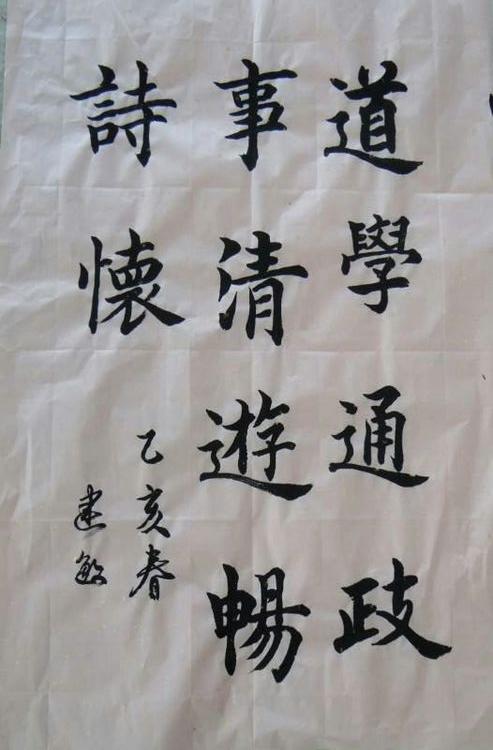 道學通政
事清遊暢
詩懷
乙亥春
建敏